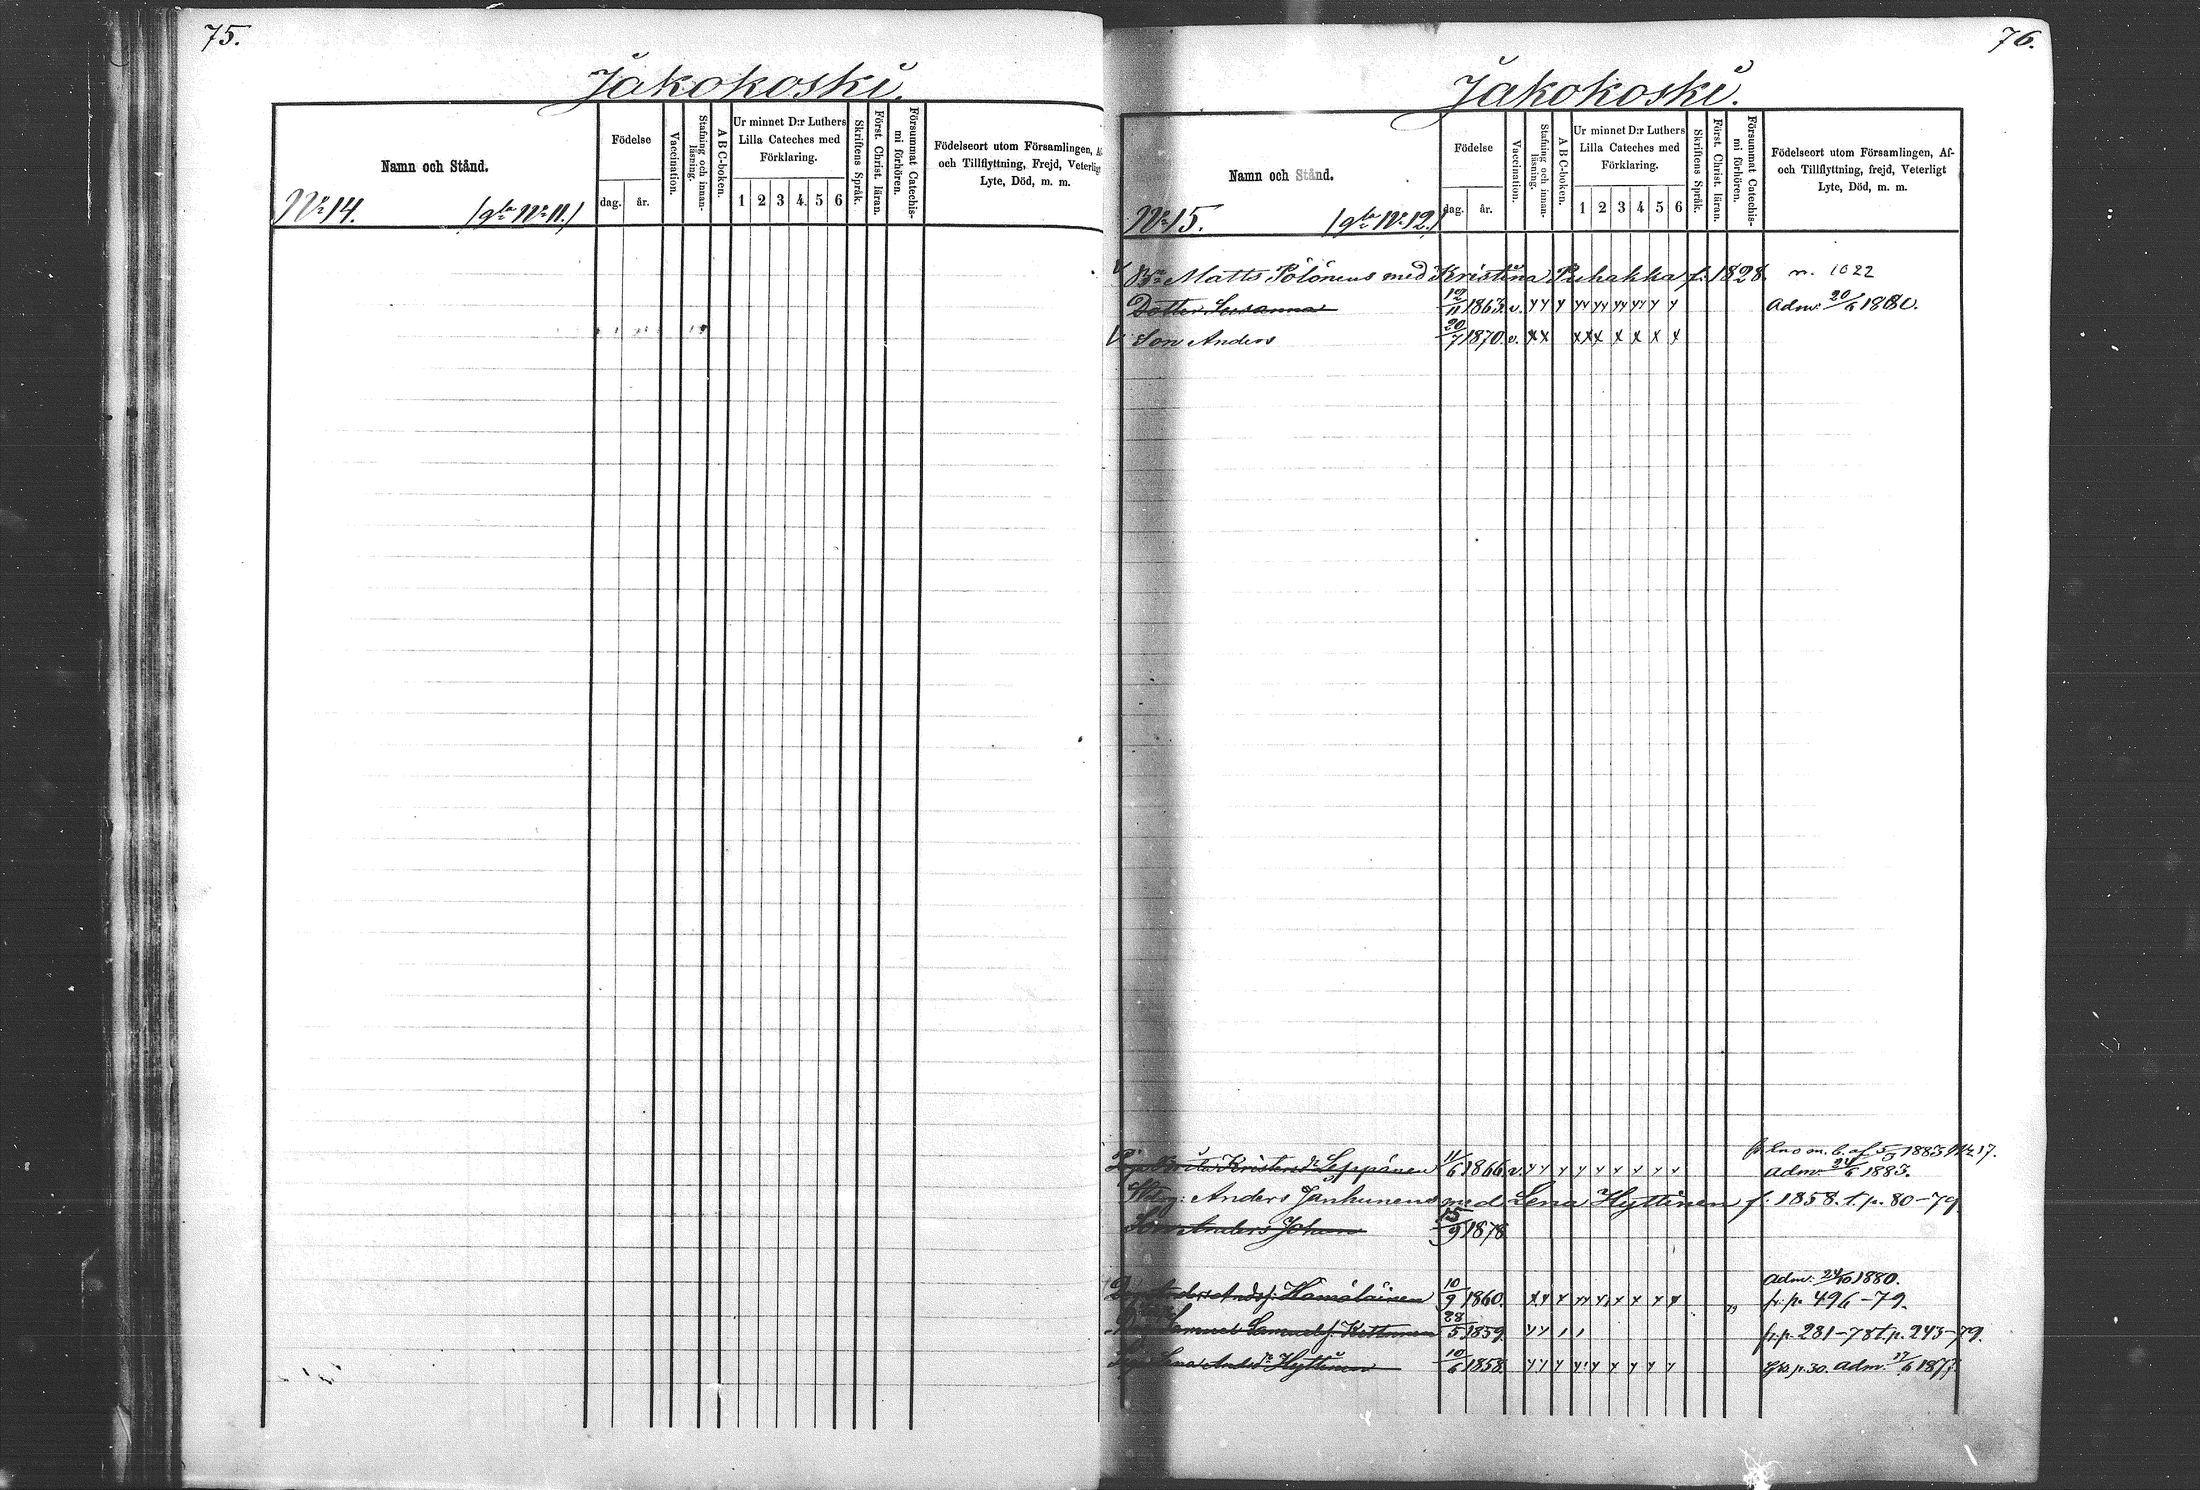 75.
Jakokoski.
Namn och Stånd.
Födelse
dag.
år.
Vaccination.
Stafning och innanläsning.
A B C-boken.
Ur minnet D:r Luthers
Lilla Cateches med
Förklaring.
1 2 3 4 5 6
Skriftens Språk.
Först. Christ. läran.
Försummat Catechismi förhören.
Födelseort utom Församlingen, Af-
och Tillflyttning, Frejd, Veterligt
Lyte, Död, m. m.
No 14. (gla No 11.)
76.
Jakokoski.
Namn och Stånd.
Födelse
dag.
år.
Vaccination.
Stafning och innanläsning.
A B C-boken.
Ur minnet D:r Luthers
Lilla Cateches med
Förklaring.
1 2 3 4 5 6
Skriftens Språk.
Först. Christ. läran.
Försummat Catechismi förhören.
Födelseort utom Församlingen, Af-
och Tillflyttning, frejd, Veterligt
Lyte, Död, m. m.
No 15. (gla No 12.)
Matts Pölönens med Kristina Puhakka f. 1828. n. 1022
Dotter Susanna 12/11 1863. v. Adm. 20/6 1880.
V Son Anders 20/7 1870. v.
fr. Eno m. b. af 5/5 1883 No 17.
Leppänen 11/6 1866. v. Adm. 24/6 1883.
Anders Janhunens med Lena Hyttinen f. 1858. t. p. 80-79
Son Anders Johan 15/9 1878
Adm. 24/10 1880.
Anders Andsf. Hämäläinen 10/9 1860. fr. p. 496-79.
Samuel Samuelsf. Kettunen 28/5 1859. fr. p. 281-78 t. p. 243-79.
Lena Andsdr Hyttinen 10/6 1858. p. 30. Adm. 17/6 1877.